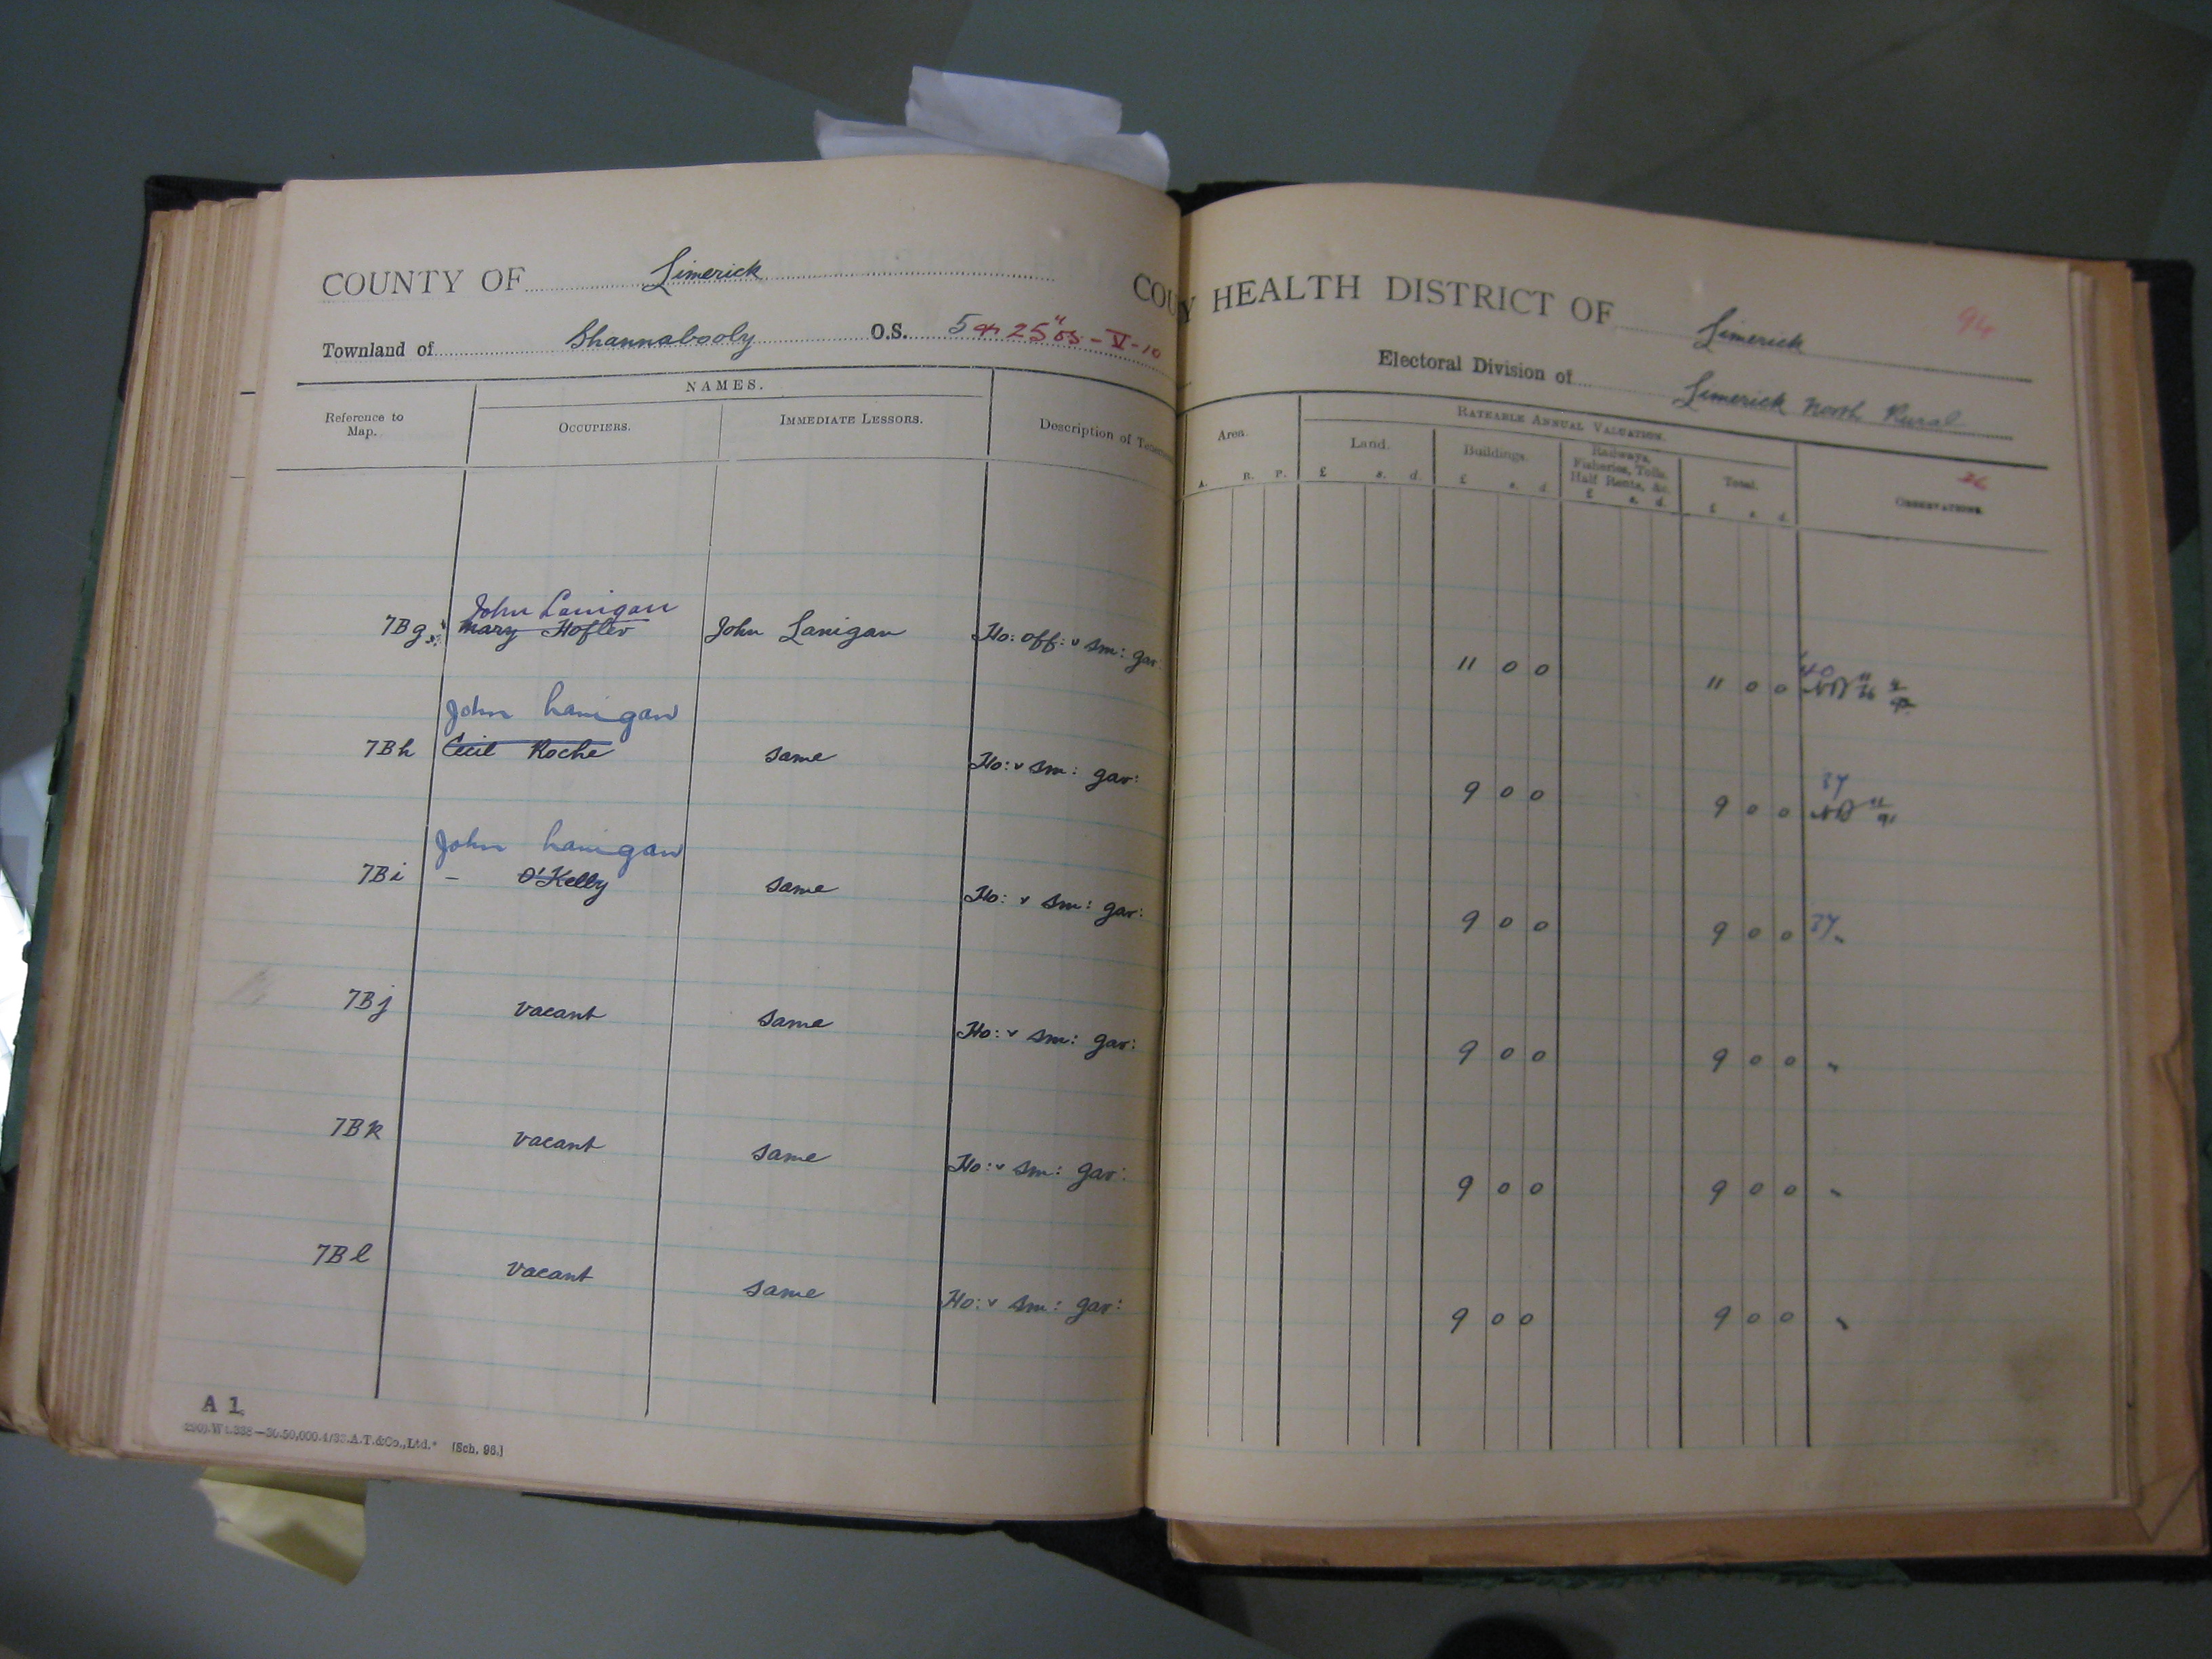 COUNTY OF Limerick
Townland of Shannabooly O.S. 5 & 25" OS - V-10
NAMES.
Reference to Map. OCCUPIERS. IMMEDIATE LESSORS. Description of Tenement
John Lanigan
7Bg Mary Hofler John Lanigan Ho: off: v sm: gar:
John Lanigan
7Bh Cecil Roche same Ho: v sm: gar:
John Lanigan
7Bi - O'Kelly same Ho: v sm: gar:
7Bj vacant same Ho: v sm: gar:
7Bk vacant same Ho: v sm: gar:
7Bl vacant same Ho: v sm: gar:
A 1
[Sch. 96.]
COUNTY HEALTH DISTRICT OF Limerick 94
Electoral Division of Limerick North Rural
RATEABLE ANNUAL VALUATION.
Area. Land. Buildings. Railways, Fisheries, Tolls, Half Rents, &c. Total. OBSERVATIONS 26
A. R. P. £ s. d. £ s. d. £ s. d. £ s. d.
40
11 0 0 11 0 0
37
9 0 0 9 0 0
9 0 0 9 0 0 37 "
9 0 0 9 0 0 "
9 0 0 9 0 0 "
9 0 0 9 0 0 "